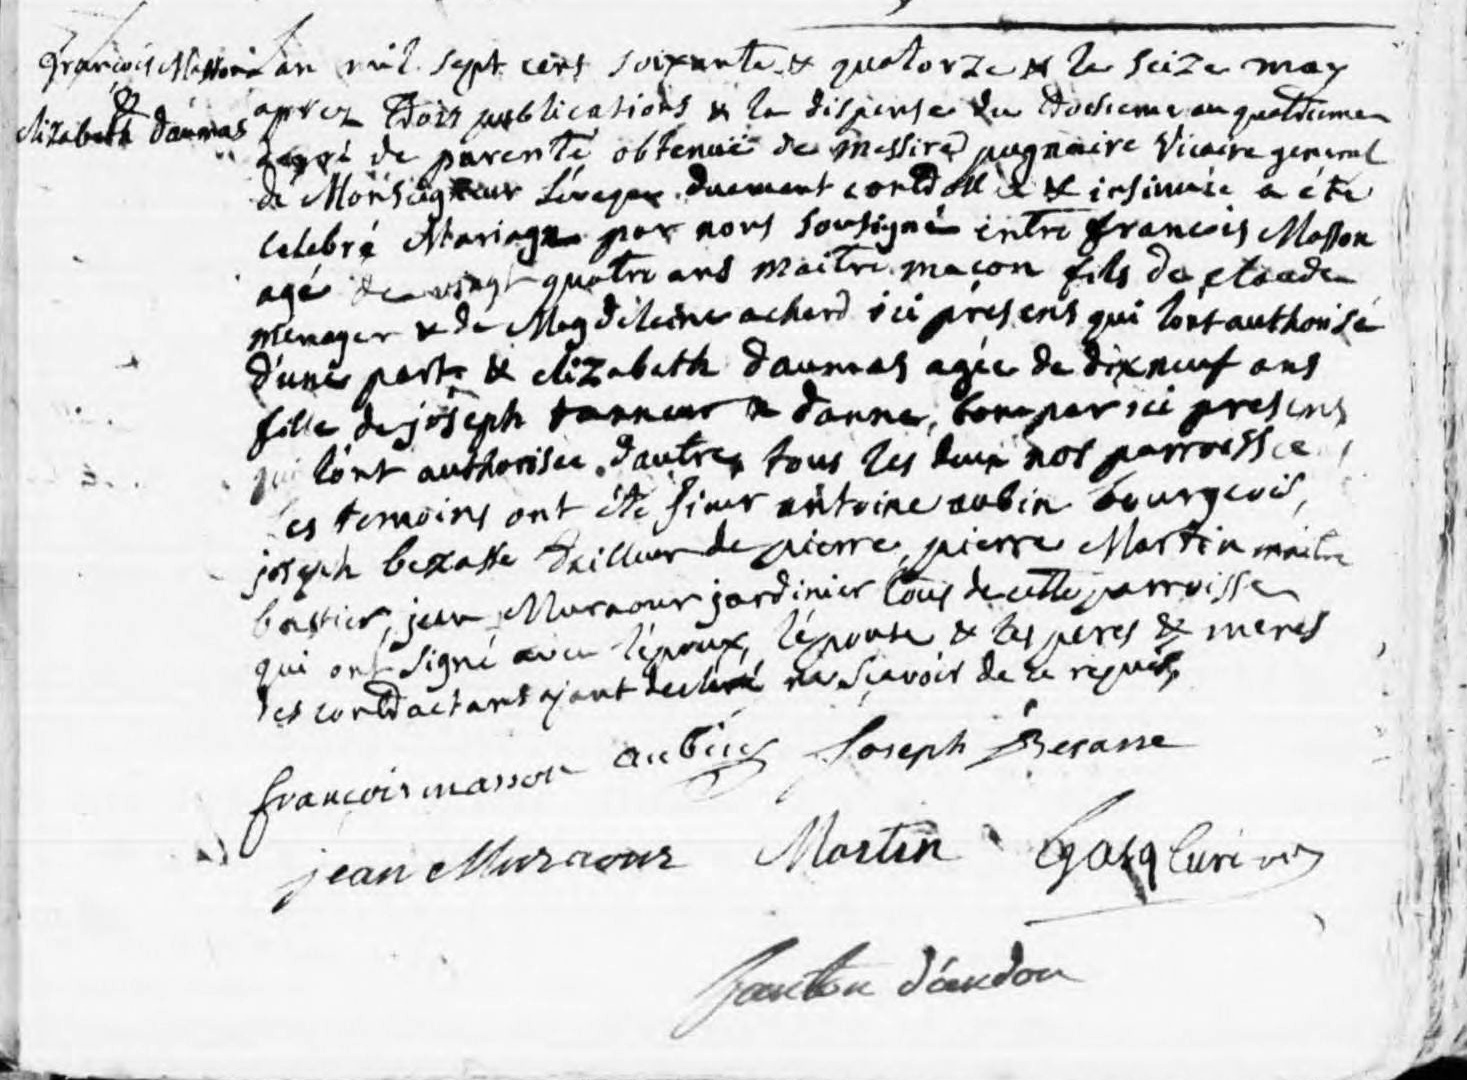 françois Masson
&
elizabeth daumas
Lan mil sept cens soixante & quatorze & le seize may
aprez trois publications & la dispense du troisieme au quatrieme
degré de parenté obtenuë de messire pugnaire Vicaire general
de Monseigneur l'éveque duement controllée & insinuée a été
celebré Mariage par nous sousigné entre françois Masson
agé de vingt quatre ans maitre maçon fils de claude
menager & de Magdeleine achard ici présens qui l'ont authorisé
d'une part & elizabeth daumas agée de dix neuf ans
fille de joseph tanneur & danne bompar ici presens
qui l'ont authorisée dautre, tous les deux nos parroisse
les temoins ont été sieur antoine aubin bourgeois,
joseph bezasse tailleur de pierre, pierre Martin maitre
bastier, jean Muraour jardinier tous de cette parroisse
qui ont signé avec l'époux, l'épouse & les peres & meres
des contractans ajant declaré ne sçavoir de ce requis,
françois masson aubin Joseph Besasse
jean Muraour Martin Gasq curé
d'audon